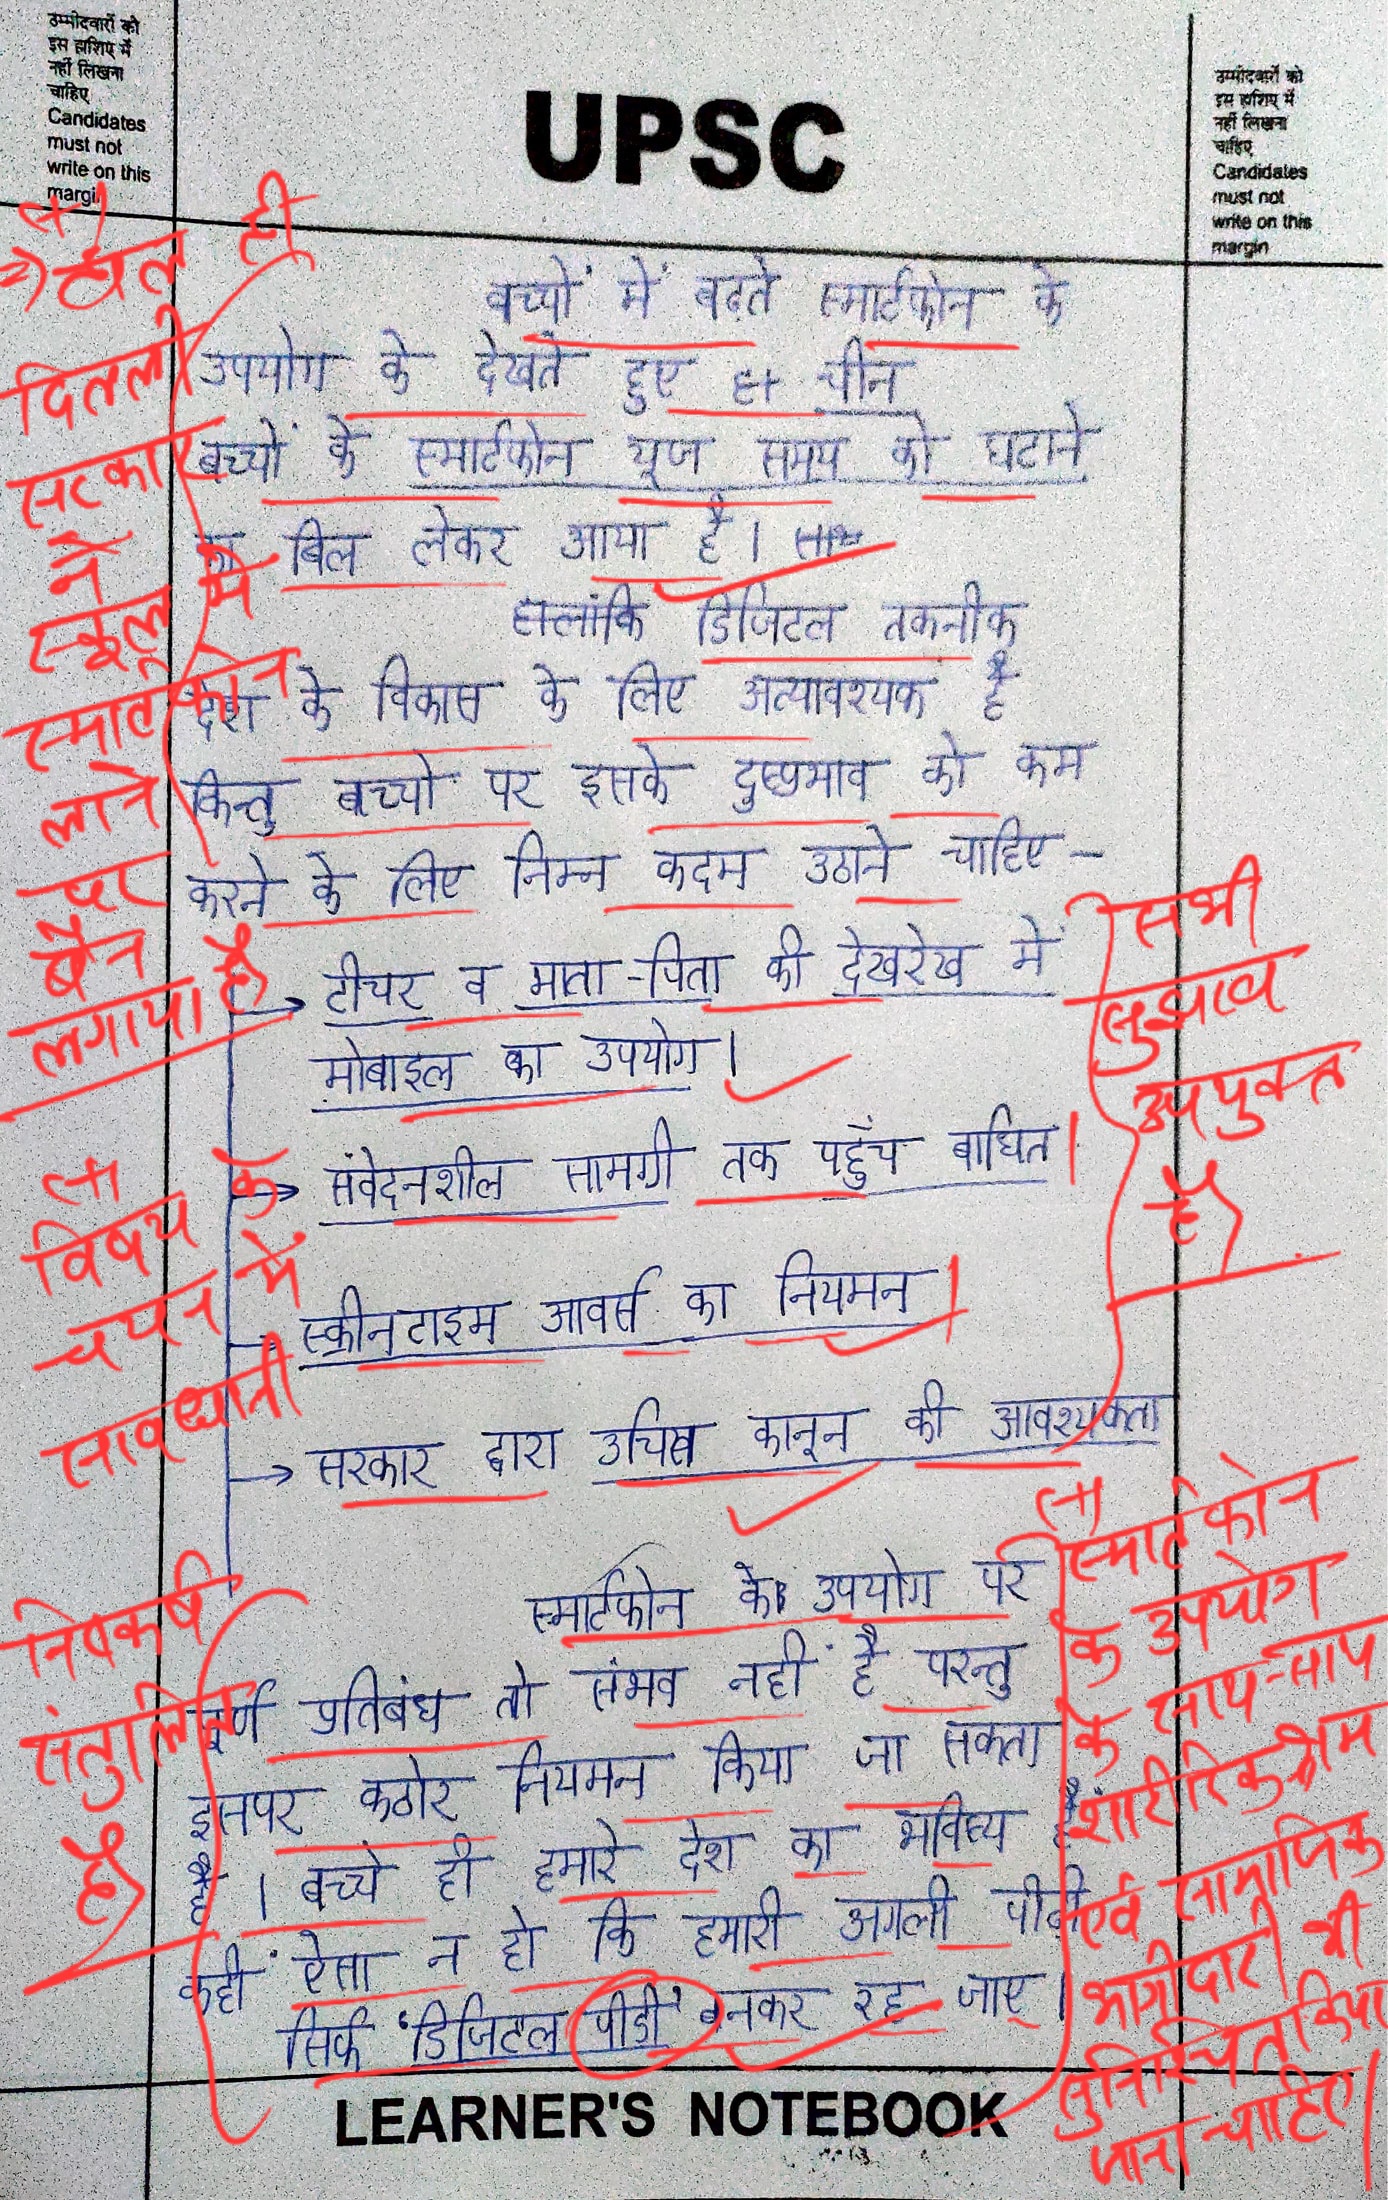 उम्मीदवारों को
इस हाशिए में
नहीं लिखना
चाहिए
Candidates
must not
write on this
margin
UPSC
उम्मीदवारों को
इस हाशिए में
नहीं लिखना
चाहिए
Candidates
must not
write on this
margin
हाल ही
दिल्ली
सरकार
ने
स्कूल में
स्मार्टफोन
लाने
पर
बैन
लगाया है
बच्चों में बढ़ते स्मार्टफोन के
उपयोग के देखते हुए चीन
बच्चों के स्मार्टफोन यूज समय को घटाने
का बिल लेकर आया है।
हालांकि डिजिटल तकनीक
देश के विकास के लिए अत्यावश्यक है
किन्तु बच्चो पर इसके दुष्प्रभाव को कम
करने के लिए निम्न कदम उठाने चाहिए –
→ टीचर व माता-पिता की देखरेख में
मोबाइल का उपयोग।
→ संवेदनशील सामग्री तक पहुँच बाधित।
→ स्क्रीनटाइम आवर्स का नियमन।
→ सरकार द्वारा उचित कानून की आवश्यकता
सभी
सुझाव
उपयुक्त
है
विषय के
चयन में
सावधानी
स्मार्टफोन के उपयोग पर
पूर्ण प्रतिबंध तो संभव नहीं है परन्तु
इसपर कठोर नियमन किया जा सकता
है। बच्चे ही हमारे देश का भविष्य है
कहीं ऐसा न हो कि हमारी अगली पीढ़ी
सिर्फ 'डिजिटल पीडी' बनकर रह जाए।
निष्कर्ष
संतुलित
है
स्मार्टफोन
के उपयोग
के साथ-साथ
शारीरिक श्रम
एवं सामाजिक
भागीदारी भी
सुनिश्चित किया
जाना चाहिए।
LEARNER'S NOTEBOOK